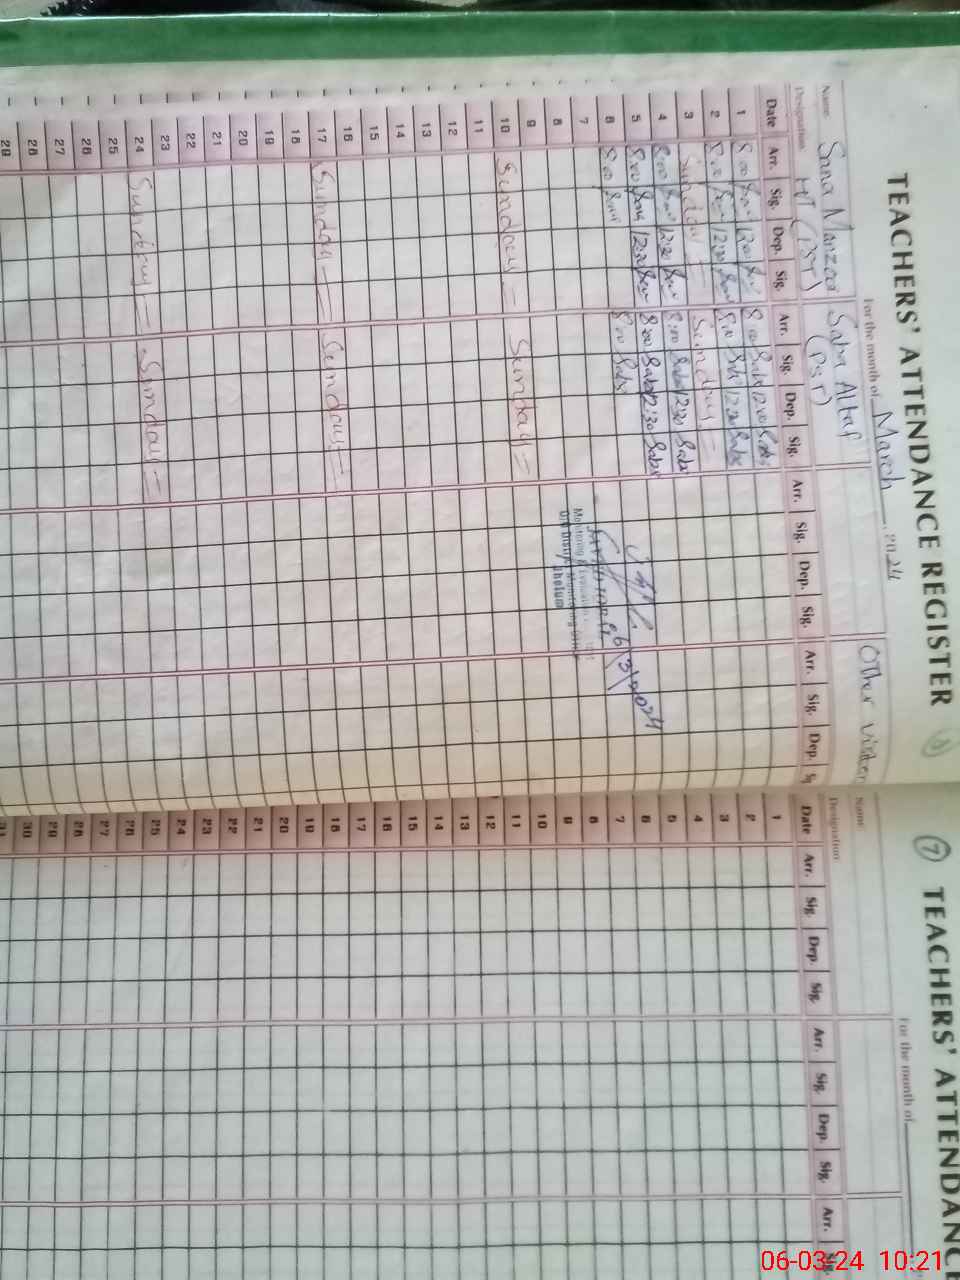 TEACHERS' ATTENDANCE REGISTER 6
For the month of March 2024
Name Sana Manzoor Saba Altaf Other Visiter
Designation HT (PST) (PST)
Date Arr. Sig. Dep. Sig. Arr. Sig. Dep. Sig. Arr. Sig. Dep. Sig. Arr. Sig. Dep.
1 8:00 12:00 8:00 Saba 12:00 Saba
2 8:00 12:30 8:00 Saba 12:30 Saba
3 Sunday = Sunday =
4 8:00 12:30 8:00 Saba 12:30 Saba
5 8:00 12:30 8:00 Saba 12:30 Saba
6 8:00 8:00 Saba 6/3/2024
7
8
9
10 Sunday = Sunday =
11
12
13
14
15
16
17 Sunday = Sunday =
18
19
20
21
22
23
24 Sunday = Sunday =
25
26
27
28
29
Monitoring & Evaluation
O/O District Monitoring Officer
Jhelum
7 TEACHERS' ATTENDANCE
For the month of
Name
Designation
Date Arr. Sig. Dep. Sig. Arr. Sig. Dep. Sig. Arr. Sig.
1
2
3
4
5
6
7
8
9
10
11
12
13
14
15
16
17
18
19
20
21
22
23
24
25
26
27
28
29
30
31
06-03-24 10:21